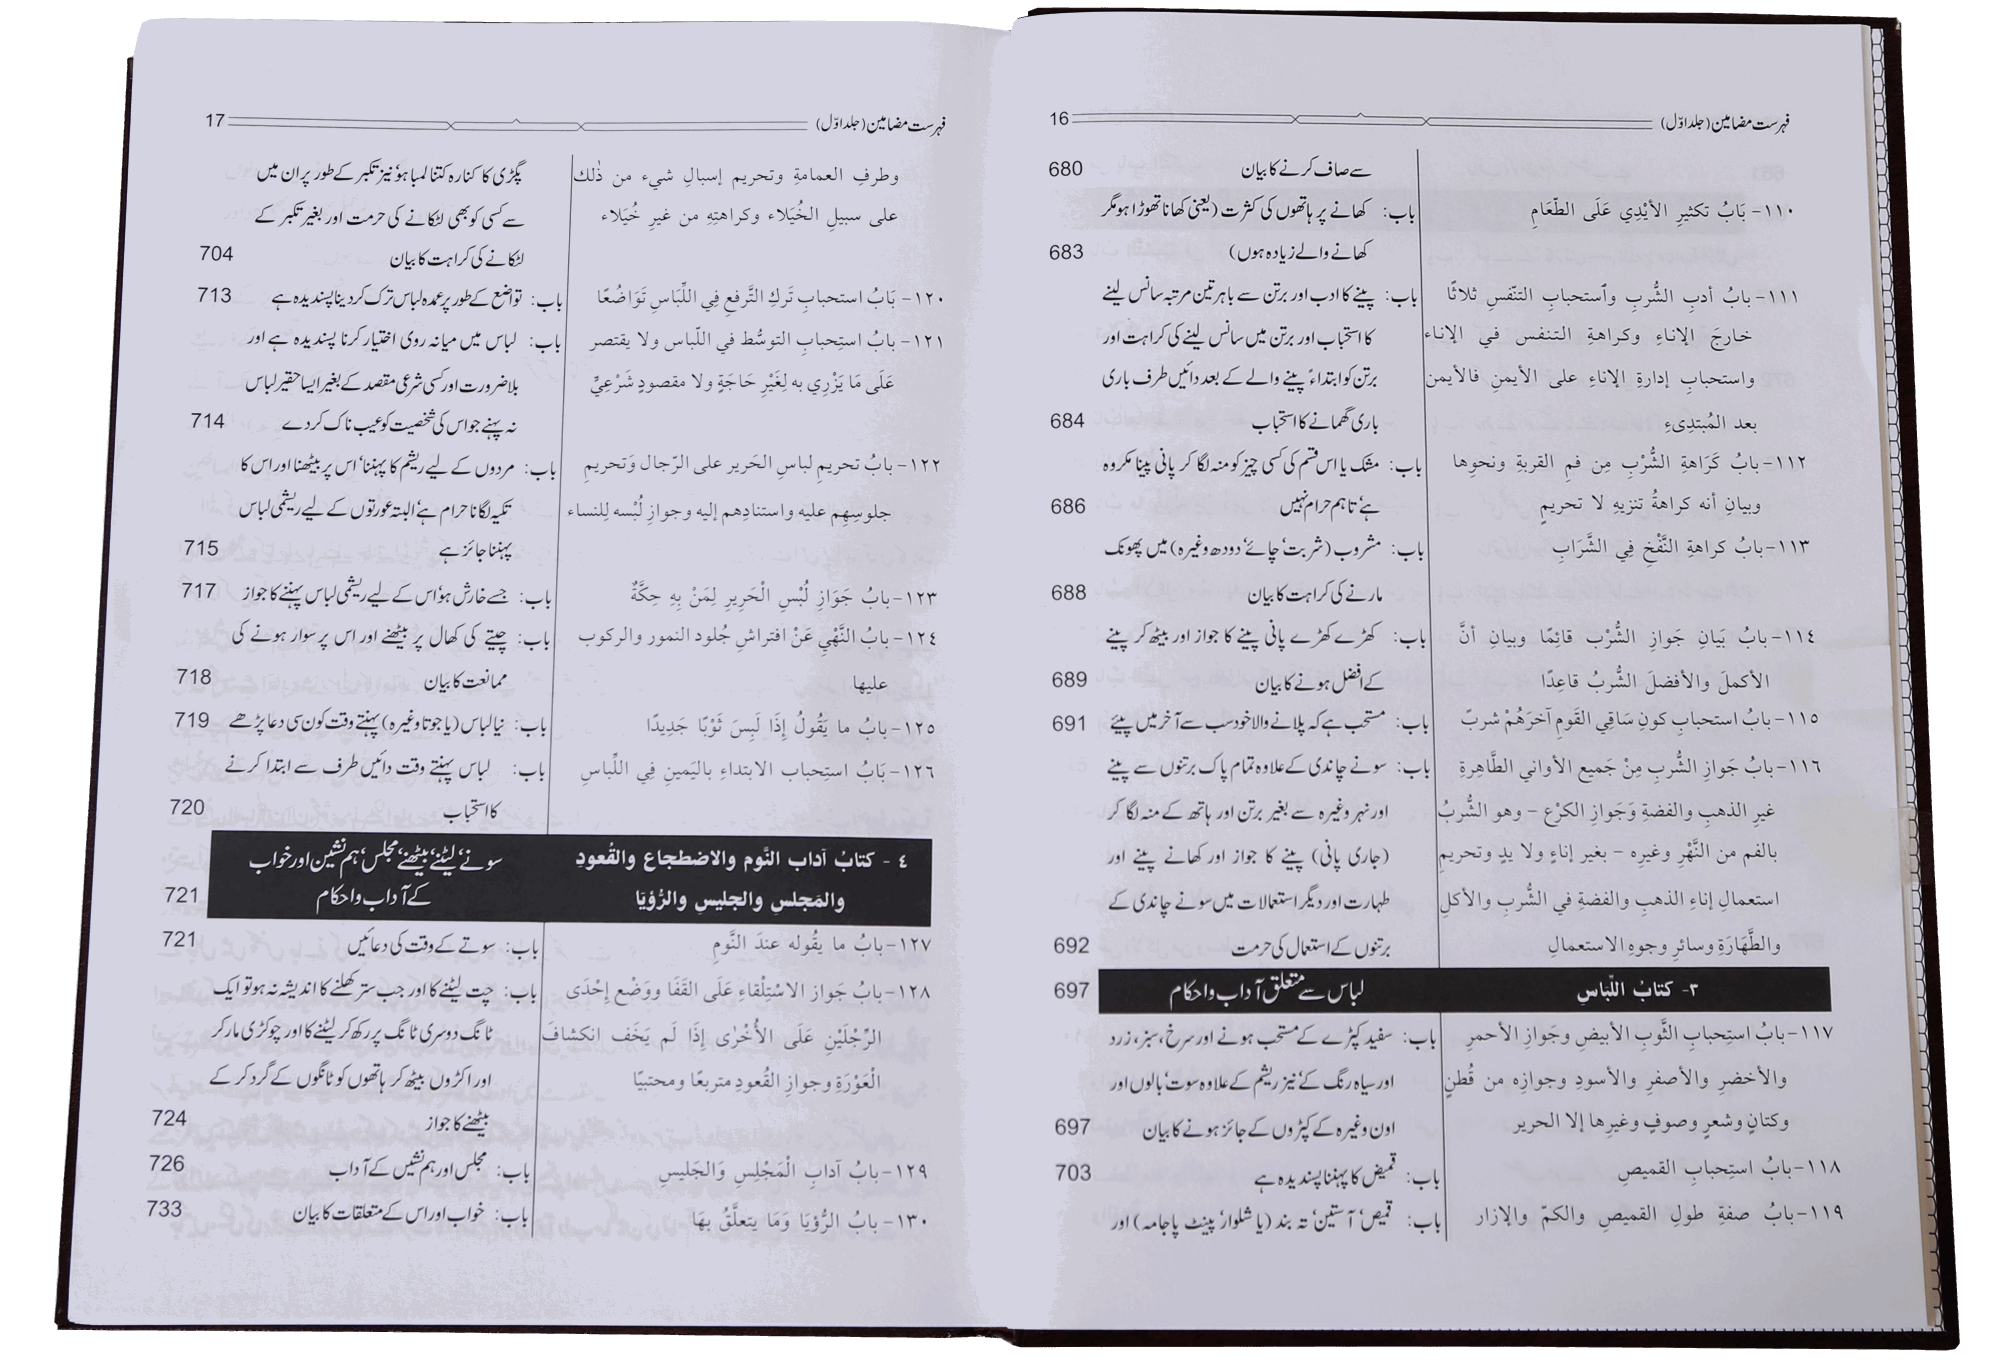 فہرست مضامین (جلد اوّل) 16
سے صاف کرنے کا بیان 680
۱۱۰- بَابُ تكثيرِ الأيْدِي عَلَى الطّعَامِ باب: کھانے پر ہاتھوں کی کثرت (یعنی کھانا تھوڑا ہو مگر
کھانے والے زیادہ ہوں) 683
۱۱۱- بابُ أدبِ الشُّربِ واستحبابِ التنّفسِ ثلاثًا باب: پینے کا ادب اور برتن سے باہر تین مرتبہ سانس لینے
خارجَ الإناءِ وكراهةِ التنفس في الإناء کا استحباب اور برتن میں سانس لینے کی کراہت اور
واستحبابِ إدارةِ الإناءِ على الأيمنِ فالأيمن برتن کو ابتداءً پینے والے کے بعد دائیں طرف باری
بعد المُبتدِىءِ باری گھمانے کا استحباب 684
۱۱۲- بابُ كَرَاهةِ الشُّرْبِ مِن فمِ القربةِ ونحوِها باب: مشک یا اس قسم کی کسی چیز کو منہ لگا کر پانی پینا مکروہ
وبيانِ أنه كراهةُ تنزيهِ لا تحريمٍ ہے، تاہم حرام نہیں 686
۱۱۳- بابُ كراهةِ النَّفْخِ فِي الشَّرَابِ باب: مشروب (شربت، چائے، دودھ وغیرہ) میں پھونک
مارنے کی کراہت کا بیان 688
۱۱٤- بابُ بَيانِ جَوازِ الشُّرْب قائِمًا وبيانِ أنَّ باب: کھڑے کھڑے پانی پینے کا جواز اور بیٹھ کر پینے
الأكملَ والأفضلَ الشُّربُ قاعِدًا کے افضل ہونے کا بیان 689
۱۱٥- بابُ استحبابِ كونِ سَاقِي القَومِ آخرَهُمْ شربّ باب: مستحب ہے کہ پلانے والا خود سب سے آخر میں پیئے 691
۱۱٦- بابُ جَوازِ الشُّربِ مِنْ جَميعِ الأواني الطَّاهِرةِ باب: سونے چاندی کے علاوہ تمام پاک برتنوں سے پینے
غيرِ الذهبِ والفضةِ وَجَوازِ الكرْعِ – وهو الشُّربُ اور نہر وغیرہ سے بغیر برتن اور ہاتھ کے منہ لگا کر
بالفم من النَّهْرِ وغيرِه – بغير إناءٍ ولا يدٍ وتحريمِ (جاری پانی) پینے کا جواز اور کھانے پینے اور
استعمالِ إناءِ الذهبِ والفضةِ في الشُّربِ والأكلِ طہارت اور دیگر استعمالات میں سونے چاندی کے
والطَّهارَةِ وسائرِ وجوهِ الاستعمالِ برتنوں کے استعمال کی حرمت 692
۳- كتابُ اللّبَاسِ لباس سے متعلق آداب و احکام 697
۱۱۷- بابُ استِحبابِ الثَّوبِ الأبيضِ وجَوازِ الأحمرِ باب: سفید کپڑے کے مستحب ہونے اور سرخ، سبز، زرد
والأخضرِ والأصفرِ والأسودِ وجوازِه من قُطنٍ اور سیاہ رنگ کے، نیز ریشم کے علاوہ سوت، بالوں اور
وكتانٍ وشعرٍ وصوفٍ وغيرِها إلا الحرير اون وغیرہ کے کپڑوں کے جائز ہونے کا بیان 697
۱۱۸- بابُ استِحبابِ القميصِ باب: قمیض کا پہننا پسندیدہ ہے 703
۱۱۹- بابُ صفةِ طولِ القميصِ والكمّ والإزار باب: قمیص، آستین، تہ بند (یا شلوار، پینٹ پاجامہ) اور
فہرست مضامین (جلد اوّل) 17
وطرفِ العمامةِ وتحريم إسبالِ شيء من ذٰلك پگڑی کا کنارہ کتنا لمبا ہو، نیز تکبر کے طور پر ان میں
على سبيلِ الخُيَلاء وكراهتِهِ من غيرِ خُيَلاء سے کسی کو بھی لٹکانے کی حرمت اور بغیر تکبر کے
لٹکانے کی کراہت کا بیان 704
۱۲۰- بَابُ استحبابِ تَركِ التَّرفعِ فِي اللِّبَاسِ تَوَاضُعًا باب: تواضع کے طور پر عمدہ لباس ترک کر دینا پسندیدہ ہے 713
۱۲۱- بابُ استِحبابِ التوسُّط في اللّباس ولا يقتصر باب: لباس میں میانہ روی اختیار کرنا پسندیدہ ہے اور
عَلَى مَا يَزْرِي به لِغَيْرِ حَاجَةٍ ولا مقصودٍ شَرْعِيٍّ بلا ضرورت اور کسی شرعی مقصد کے بغیر ایسا حقیر لباس
نہ پہنے جو اس کی شخصیت کو عیب ناک کر دے 714
۱۲۲- بابُ تحريمِ لباسِ الحَريرِ على الرّجال وَتحريمِ باب: مردوں کے لیے ریشم کا پہننا، اس پر بیٹھنا اور اس کا
جلوسِهِم عليه واستنادِهم إليه وجوازِ لُبْسه لِلنساء تکیہ لگانا حرام ہے، البتہ عورتوں کے لیے ریشمی لباس
پہننا جائز ہے 715
۱۲۳- بابُ جَوَازِ لُبْسِ الْحَرِيرِ لِمَنْ بِهِ حِكَّةٌ باب: جسے خارش ہو، اس کے لیے ریشمی لباس پہننے کا جواز 717
۱۲٤- بابُ النَّهْيِ عَنْ افتراشِ جُلود النمور والركوب باب: چیتے کی کھال پر بیٹھنے اور اس پر سوار ہونے کی
عليها ممانعت کا بیان 718
۱۲٥- بابُ ما يَقُولُ إِذَا لَبِسَ ثَوْبًا جَدِيدًا باب: نیا لباس (یا جوتا وغیرہ) پہنتے وقت کون سی دعا پڑھے 719
۱۲٦- بَابُ استِحباب الابتداءِ باليَمينِ فِي اللِّباسِ باب: لباس پہنتے وقت دائیں طرف سے ابتدا کرنے
کا استحباب 720
٤- كتابُ آداب النَّوم والاضطجاع والقُعودِ سونے، لیٹنے، بیٹھنے، مجلس، ہم نشین اور خواب
والمَجلسِ والجليسِ والرُّؤيَا کے آداب و احکام 721
۱۲۷- بابُ ما يقُوله عندَ النَّومِ باب: سوتے کے وقت کی دعائیں 721
۱۲۸- بابُ جَواز الاسْتِلْقاءِ عَلَى القَفَا ووَضْع إحْدَى باب: چت لیٹنے کا اور جب ستر کھلنے کا اندیشہ نہ ہو تو ایک
الرِّجْلَيْنِ عَلَى الأُخْرٰى إذَا لَم يَخَف انكشافَ ٹانگ دوسری ٹانگ پر رکھ کر لیٹنے کا اور چوکڑی مار کر
الْعَوْرَةِ وجوازِ القُعودِ متربعًا ومحتبيًا اور اکڑوں بیٹھ کر ہاتھوں کو ٹانگوں کے گرد کر کے
بیٹھنے کا جواز 724
۱۲۹- بابُ آدابِ الْمَجْلِسِ وَالجَليسِ باب: مجلس اور ہم نشیں کے آداب 726
۱۳۰- بابُ الرُّؤيَا وَمَا يتعلَّقُ بهَا باب: خواب اور اس کے متعلقات کا بیان 733